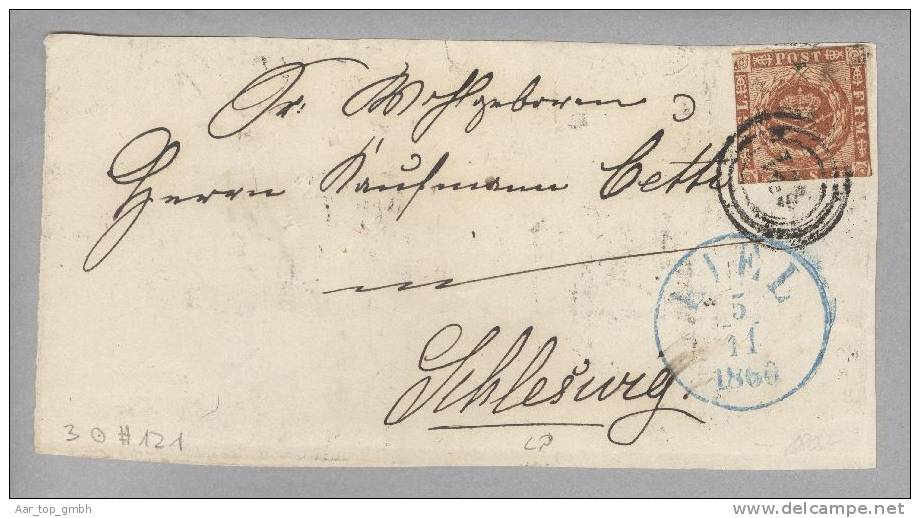 POST
FRM
KGL
Sr: Wohlgeboren
Herrn Kaufmann Cette
in
KIEL
5
11
1860
Schleswig.
3 ⊙ #121
LP
Aar_top_gmbh
www.delcampe.net